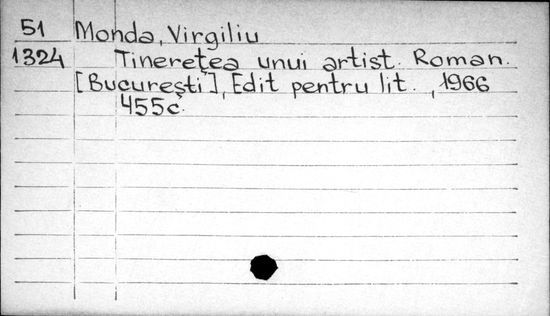 51 Monda, Virgiliu
1324 Tinereţea unui artist. Roman.
[Bucureşti], Edit pentru lit., 1966
455c.